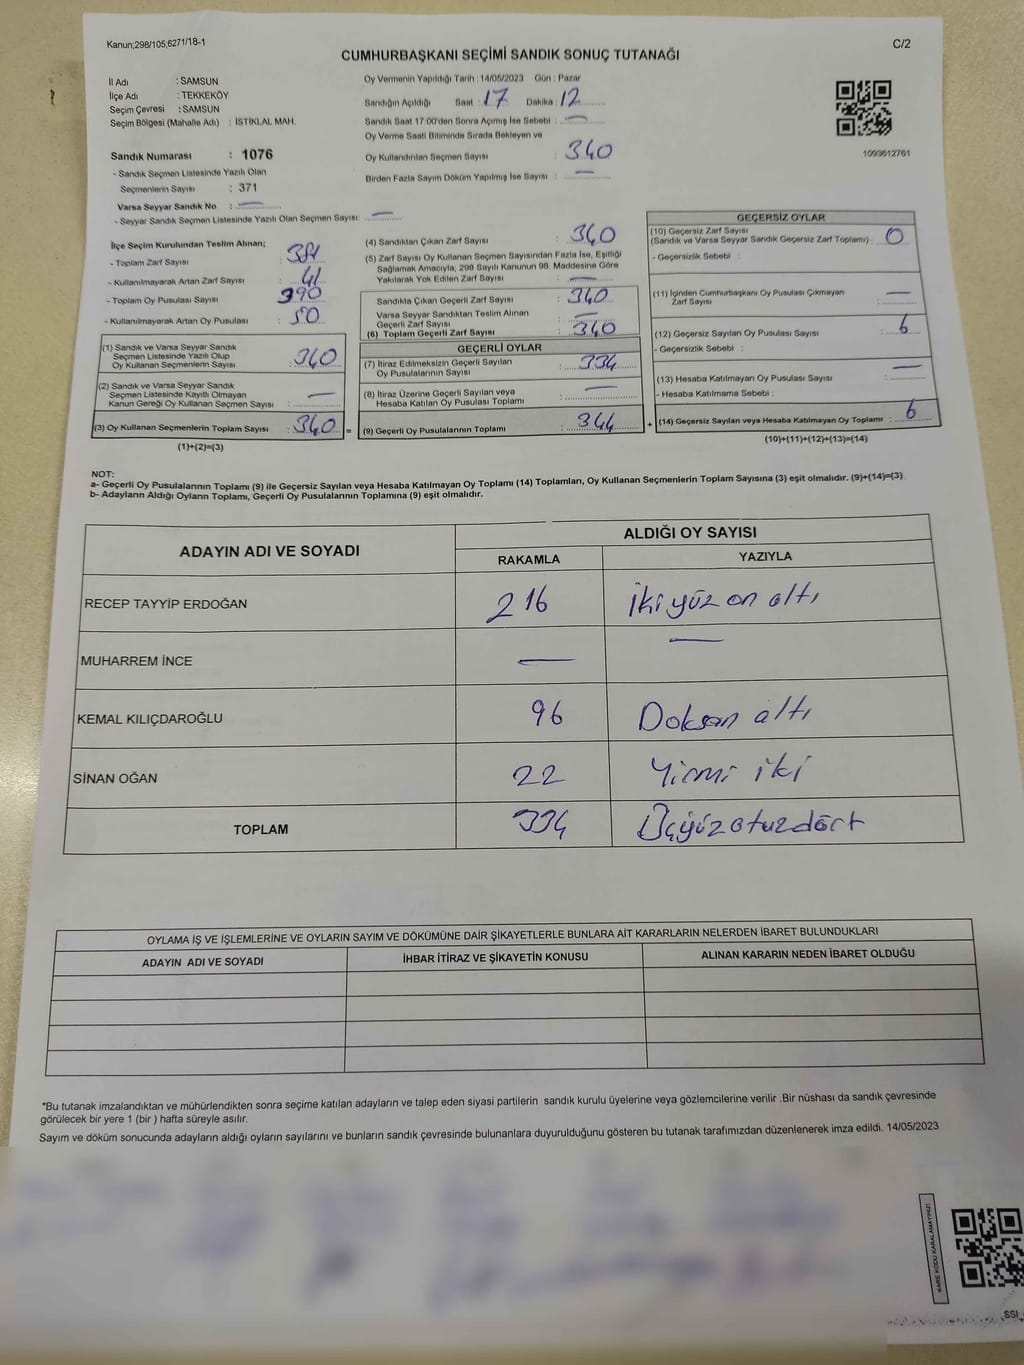 Kanun;298/105;6271/18-1
C/2
CUMHURBAŞKANI SEÇİMİ SANDIK SONUÇ TUTANAĞI
İl Adı : SAMSUN
İlçe Adı : TEKKEKÖY
Seçim Çevresi : SAMSUN
Seçim Bölgesi (Mahalle Adı) : İSTİKLAL MAH.
Sandık Numarası : 1076
- Sandık Seçmen Listesinde Yazılı Olan
Seçmenlerin Sayısı : 371
Varsa Seyyar Sandık No : —
- Seyyar Sandık Seçmen Listesinde Yazılı Olan Seçmen Sayısı: —
Oy Vermenin Yapıldığı Tarih : 14/05/2023 Gün : Pazar
Sandığın Açıldığı Saat : 17 Dakika : 12
Sandık Saat 17:00'den Sonra Açımış İse Sebebi : —
Oy Verme Saati Bitiminde Sırada Bekleyen ve
Oy Kullandırılan Seçmen Sayısı : 340
Birden Fazla Sayım Döküm Yapılmış İse Sayısı : —
1093612761
İlçe Seçim Kurulundan Teslim Alınan;
- Toplam Zarf Sayısı : 381
- Kullanılmayarak Artan Zarf Sayısı : 41
- Toplam Oy Pusulası Sayısı : 390
- Kullanılmayarak Artan Oy Pusulası : 50
(1) Sandık ve Varsa Seyyar Sandık
Seçmen Listesinde Yazılı Olup
Oy Kullanan Seçmenlerin Sayısı : 340
(2) Sandık ve Varsa Seyyar Sandık
Seçmen Listesinde Kayıtlı Olmayan
Kanun Gereği Oy Kullanan Seçmen Sayısı : —
(3) Oy Kullanan Seçmenlerin Toplam Sayısı : 340 =
(1)+(2)=(3)
(4) Sandıktan Çıkan Zarf Sayısı : 340
(5) Zarf Sayısı Oy Kullanan Seçmen Sayısından Fazla İse, Eşitliği
Sağlamak Amacıyla; 298 Sayılı Kanunun 98. Maddesine Göre
Yakılarak Yok Edilen Zarf Sayısı : —
Sandıkta Çıkan Geçerli Zarf Sayısı : 340
Varsa Seyyar Sandıktan Teslim Alınan
Geçerli Zarf Sayısı : —
(6) Toplam Geçerli Zarf Sayısı : 340
GEÇERLİ OYLAR
(7) İtiraz Edilmeksizin Geçerli Sayılan
Oy Pusulalarının Sayısı : 334
(8) İtiraz Üzerine Geçerli Sayılan veya
Hesaba Katılan Oy Pusulası Toplamı : —
(9) Geçerli Oy Pusulalarının Toplamı : 344 +
GEÇERSİZ OYLAR
(10) Geçersiz Zarf Sayısı
(Sandık ve Varsa Seyyar Sandık Geçersiz Zarf Toplamı) : 0
- Geçersizlik Sebebi :
(11) İçinden Cumhurbaşkanı Oy Pusulası Çıkmayan
Zarf Sayısı : —
(12) Geçersiz Sayılan Oy Pusulası Sayısı : 6
- Geçersizlik Sebebi :
(13) Hesaba Katılmayan Oy Pusulası Sayısı : —
- Hesaba Katılmama Sebebi :
(14) Geçersiz Sayılan veya Hesaba Katılmayan Oy Toplamı : 6
(10)+(11)+(12)+(13)=(14)
NOT:
a- Geçerli Oy Pusulalarının Toplamı (9) ile Geçersiz Sayılan veya Hesaba Katılmayan Oy Toplamı (14) Toplamları, Oy Kullanan Seçmenlerin Toplam Sayısına (3) eşit olmalıdır. (9)+(14)=(3)
b- Adayların Aldığı Oyların Toplamı, Geçerli Oy Pusulalarının Toplamına (9) eşit olmalıdır.
ADAYIN ADI VE SOYADI ALDIĞI OY SAYISI
RAKAMLA YAZIYLA
RECEP TAYYİP ERDOĞAN 216 İki yüz on altı
MUHARREM İNCE — —
KEMAL KILIÇDAROĞLU 96 Doksan altı
SİNAN OĞAN 22 Yirmi iki
TOPLAM 334 Üçyüz otuz dört
OYLAMA İŞ VE İŞLEMLERİNE VE OYLARIN SAYIM VE DÖKÜMÜNE DAİR ŞİKAYETLERLE BUNLARA AİT KARARLARIN NELERDEN İBARET BULUNDUKLARI
ADAYIN ADI VE SOYADI İHBAR İTİRAZ VE ŞİKAYETİN KONUSU ALINAN KARARIN NEDEN İBARET OLDUĞU
*Bu tutanak imzalandıktan ve mühürlendikten sonra seçime katılan adayların ve talep eden siyasi partilerin sandık kurulu üyelerine veya gözlemcilerine verilir .Bir nüshası da sandık çevresinde
görülecek bir yere 1 (bir ) hafta süreyle asılır.
Sayım ve döküm sonucunda adayların aldığı oyların sayılarını ve bunların sandık çevresinde bulunanlara duyurulduğunu gösteren bu tutanak tarafımızdan düzenlenerek imza edildi. 14/05/2023
KARE KODU KARALAMAYINIZ!
SSI